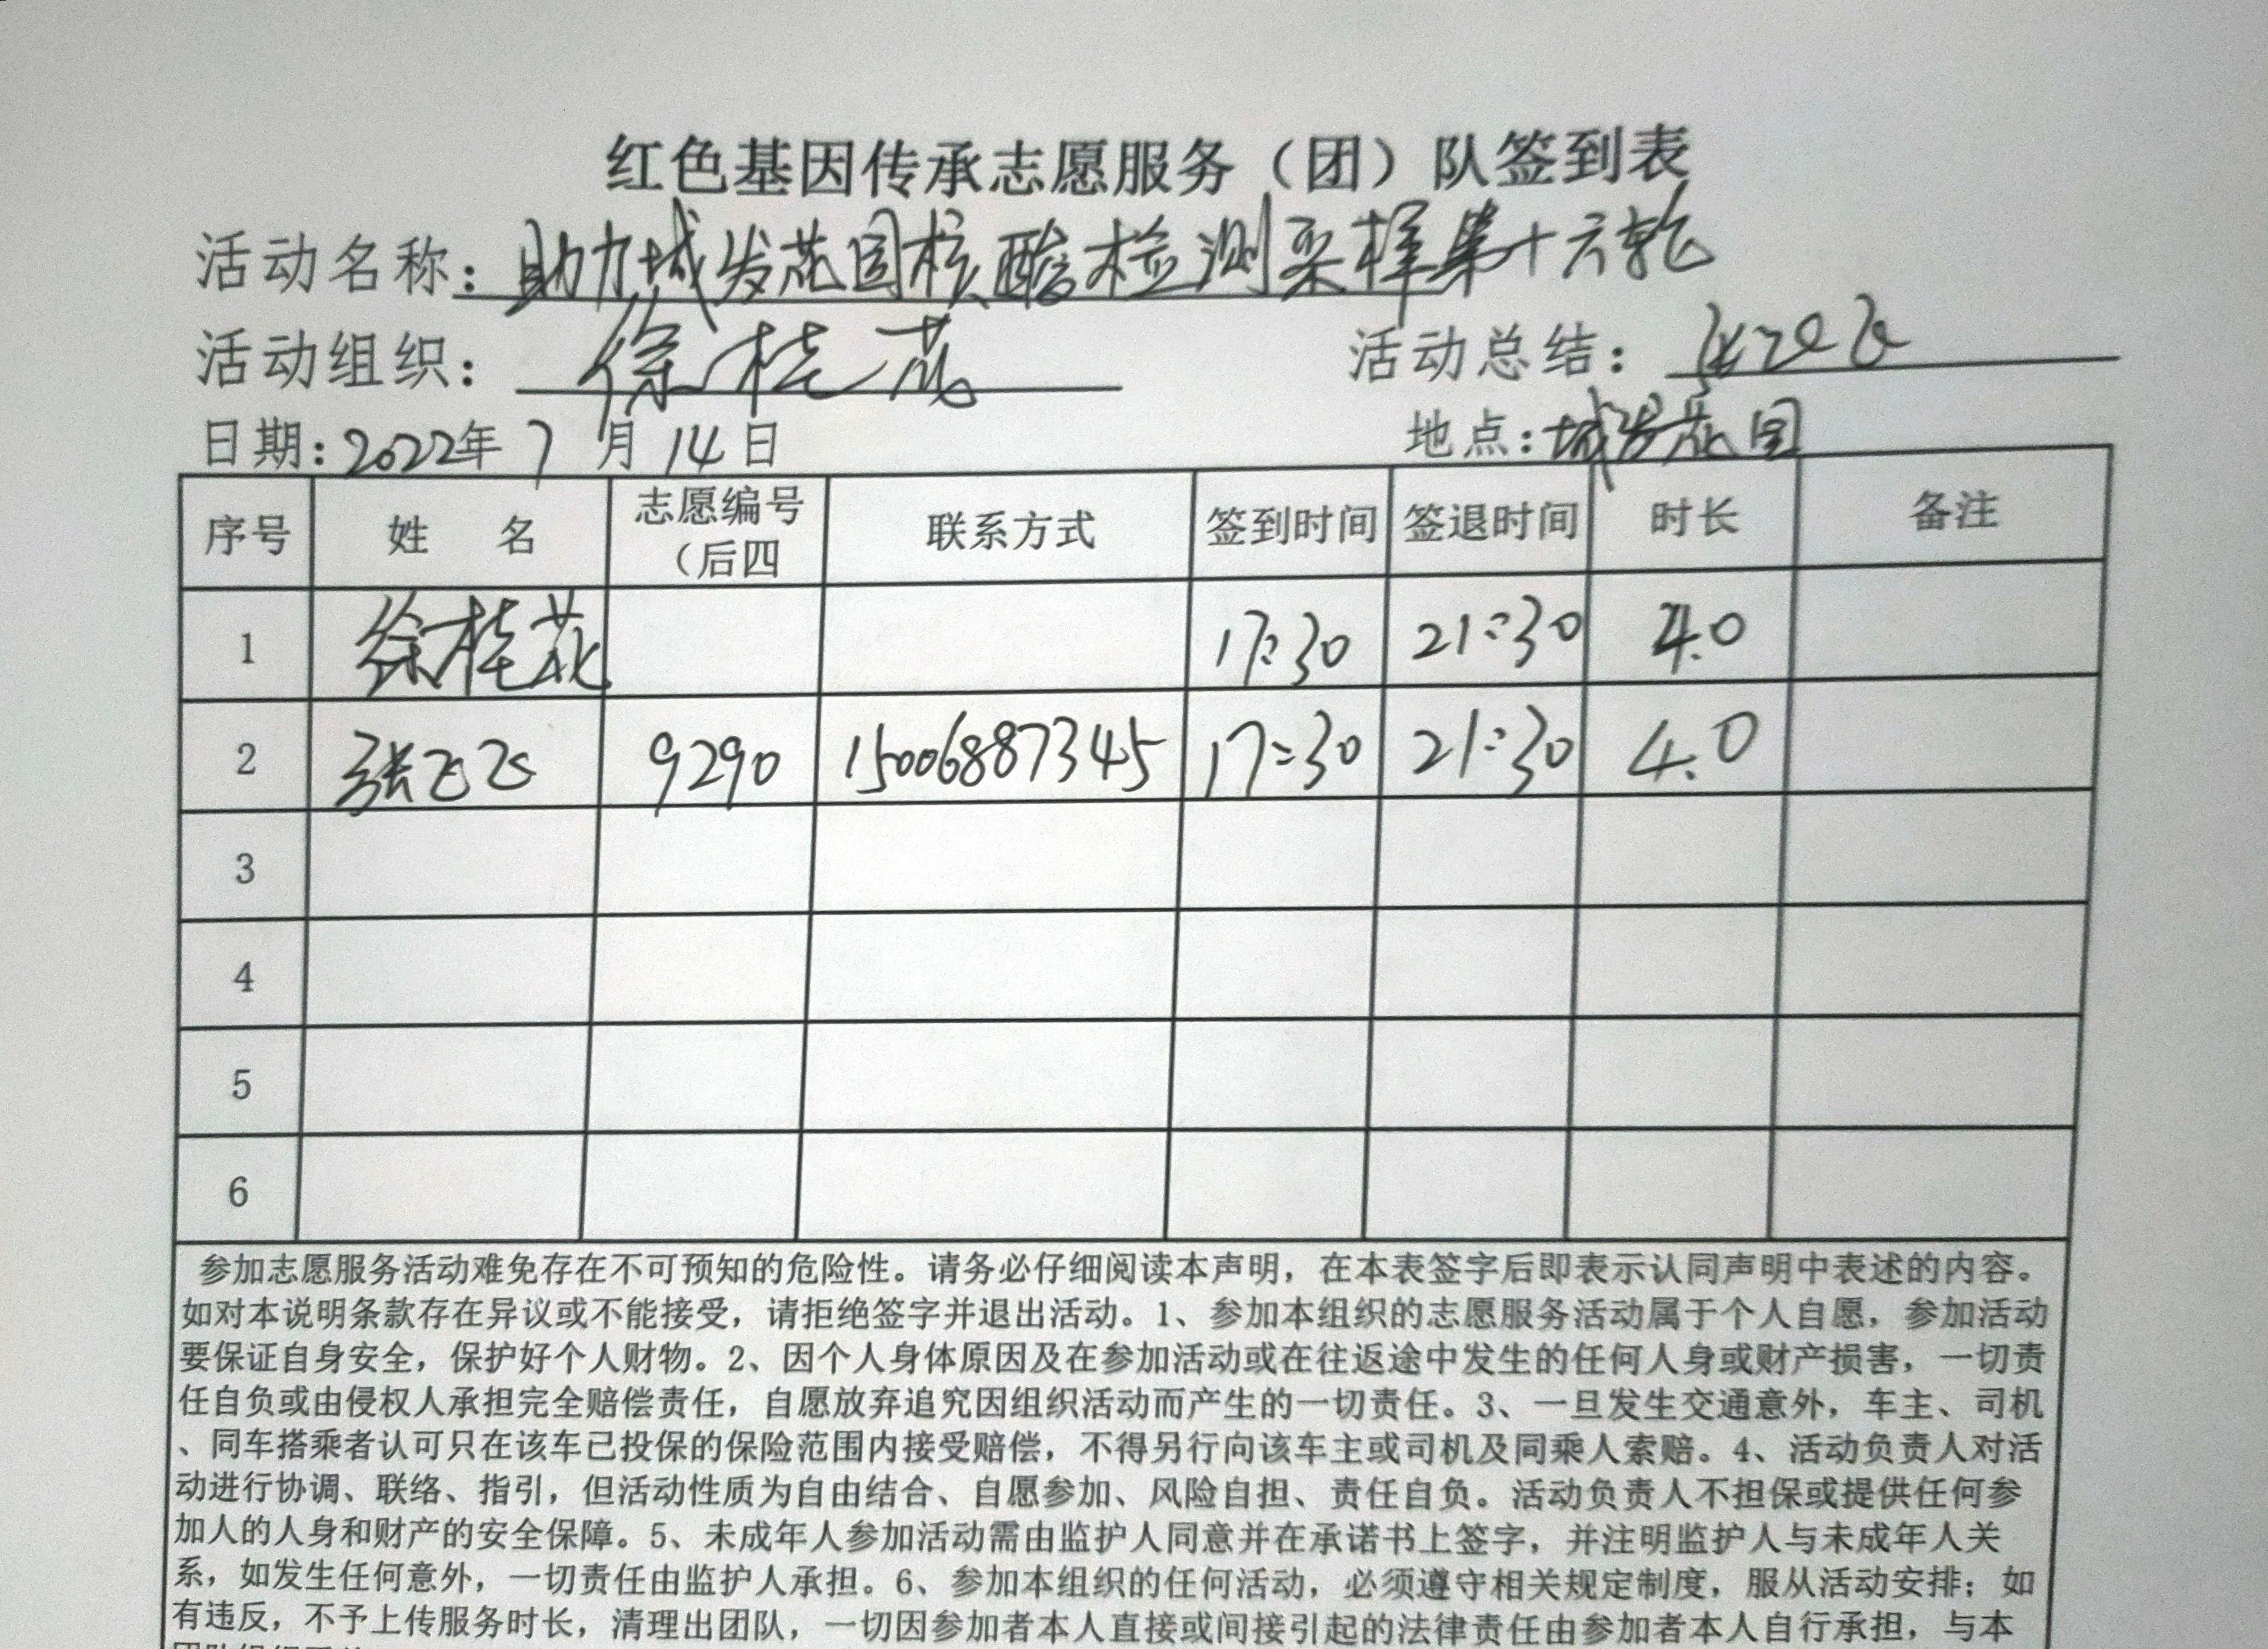 红色基因传承志愿服务（团）队签到表
活动名称：助力城发花园核酸检测采样第十六轮
活动组织：徐桂花 活动总结：张飞飞
日期：2022年7月14日 地点：城发花园
序号 姓 名 志愿编号（后四 联系方式 签到时间 签退时间 时长 备注
1 徐桂花 17:30 21:30 4.0
2 张飞飞 9290 15006887345 17:30 21:30 4.0
3
4
5
6
参加志愿服务活动难免存在不可预知的危险性。请务必仔细阅读本声明，在本表签字后即表示认同声明中表述的内容。
如对本说明条款存在异议或不能接受，请拒绝签字并退出活动。1、参加本组织的志愿服务活动属于个人自愿，参加活动
要保证自身安全，保护好个人财物。2、因个人身体原因及在参加活动或在往返途中发生的任何人身或财产损害，一切责
任自负或由侵权人承担完全赔偿责任，自愿放弃追究因组织活动而产生的一切责任。3、一旦发生交通意外，车主、司机
、同车搭乘者认可只在该车已投保的保险范围内接受赔偿，不得另行向该车主或司机及同乘人索赔。4、活动负责人对活
动进行协调、联络、指引，但活动性质为自由结合、自愿参加、风险自担、责任自负。活动负责人不担保或提供任何参
加人的人身和财产的安全保障。5、未成年人参加活动需由监护人同意并在承诺书上签字，并注明监护人与未成年人关
系，如发生任何意外，一切责任由监护人承担。6、参加本组织的任何活动，必须遵守相关规定制度，服从活动安排；如
有违反，不予上传服务时长，清理出团队，一切因参加者本人直接或间接引起的法律责任由参加者本人自行承担，与本